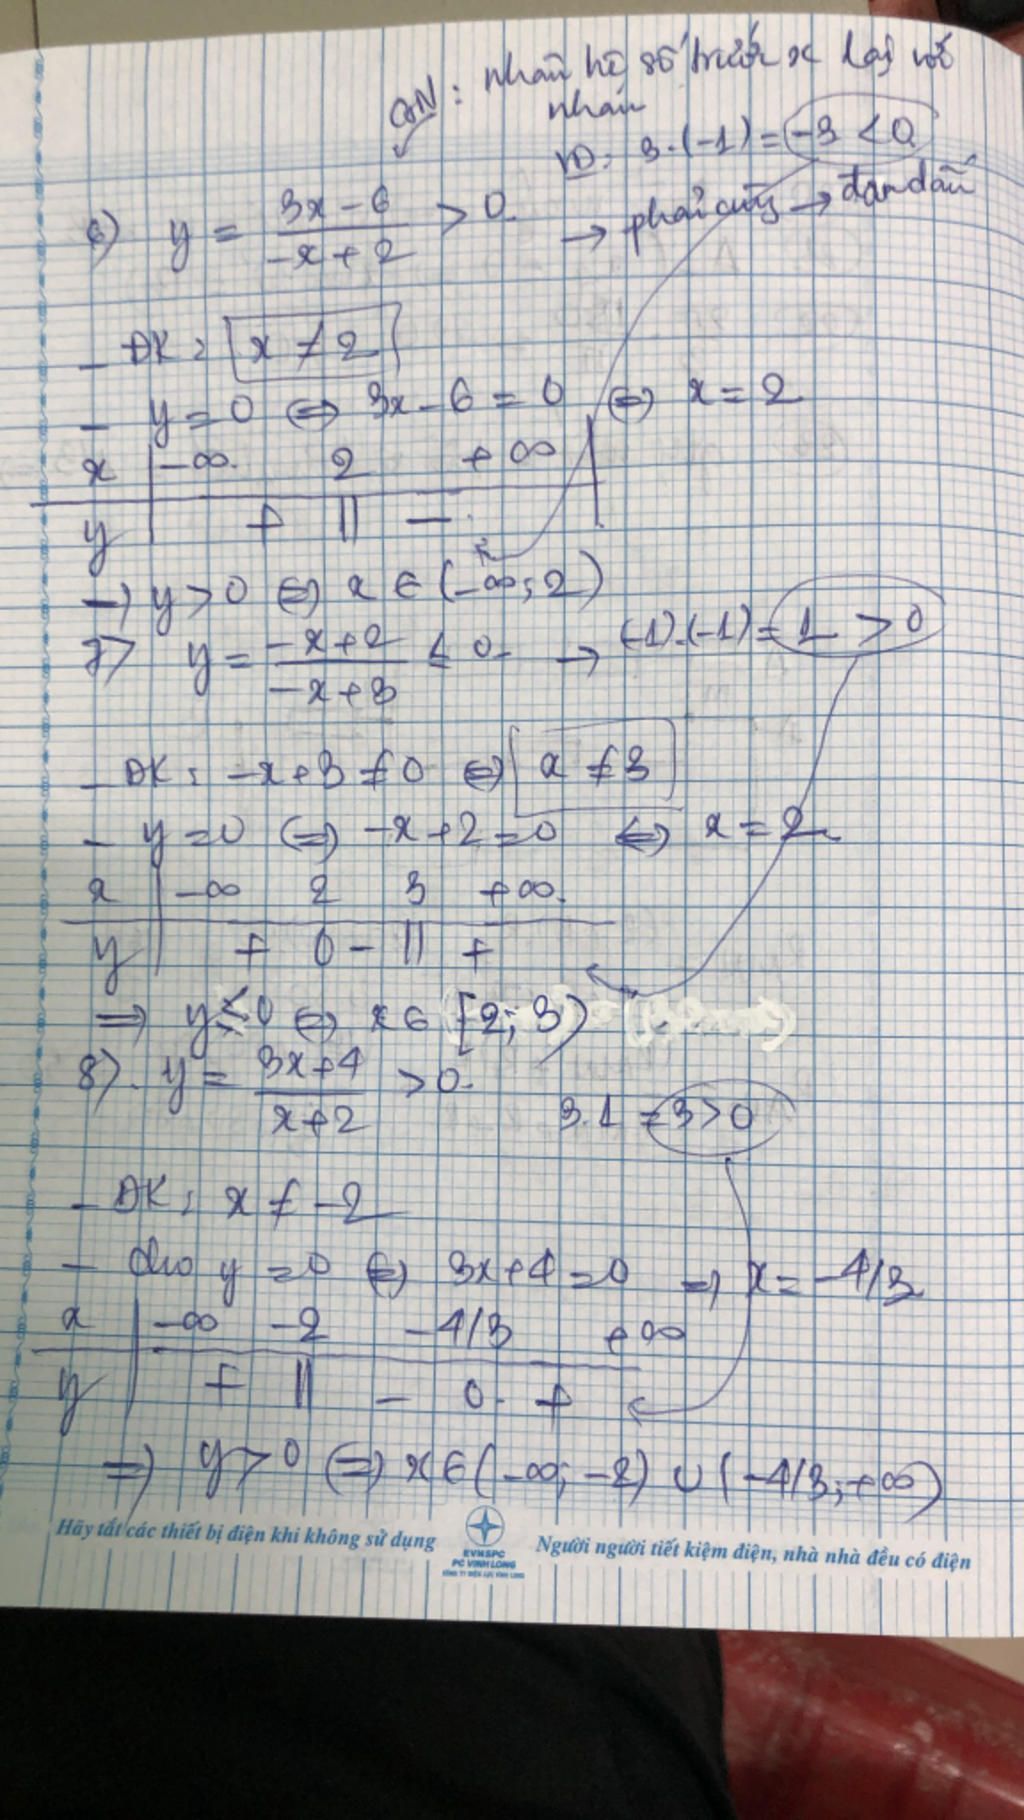 QN: nhân hệ số trước x lại với
nhau
VD: 3.(-1) = -3 < 0
→ phải cùng → đan dấu
6) y = (3x - 6)/(-x + 2) > 0
- ĐK: x ≠ 2
- y = 0 ⇔ 3x - 6 = 0 ⇔ x = 2
x | -∞ 2 +∞
y | + || -
→ y > 0 ⇔ x ∈ (-∞; 2)
7) y = (-x + 2)/(-x + 3) ≤ 0 → (-1).(-1) = 1 > 0
- ĐK: -x + 3 ≠ 0 ⇔ x ≠ 3
- y = 0 ⇔ -x + 2 = 0 ⇔ x = 2
x | -∞ 2 3 +∞
y | + 0 - || +
⇒ y ≤ 0 ⇔ x ∈ [2; 3)
8) y = (3x + 4)/(x + 2) > 0
3.1 = 3 > 0
- ĐK: x ≠ -2
- Cho y = 0 ⇔ 3x + 4 = 0 ⇒ x = -4/3
x | -∞ -2 -4/3 +∞
y | + || - 0 +
⇒ y > 0 ⇔ x ∈ (-∞; -2) ∪ (-4/3; +∞)
Hãy tắt các thiết bị điện khi không sử dụng
EVNSPC
PC VINH LONG
Người người tiết kiệm điện, nhà nhà đều có điện